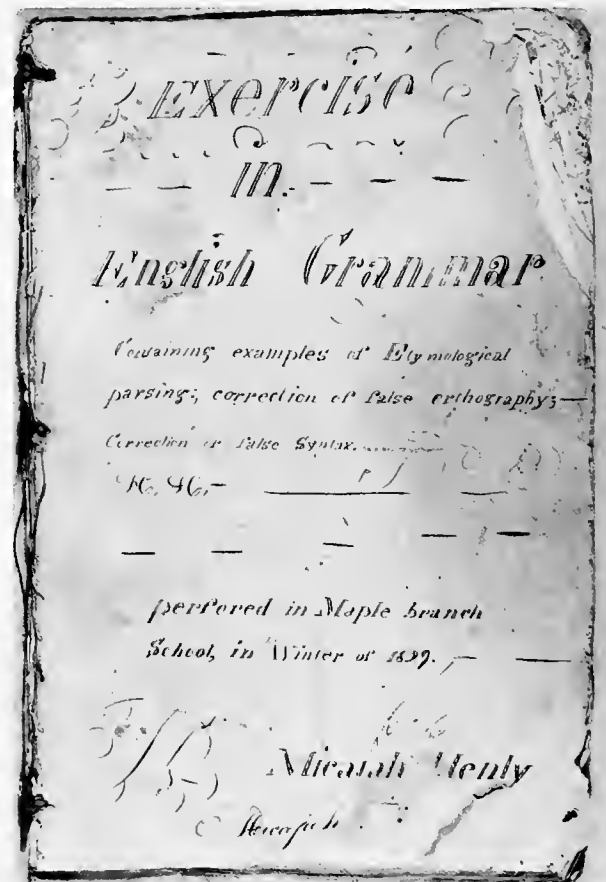 Exercise
in.
English Grammar
Containing examples of Etymological
parsing:, correction of false orthography;
Correction of false Syntax.
&c. &c.
perfored in Maple branch
School, in Winter of
Micajah Henly